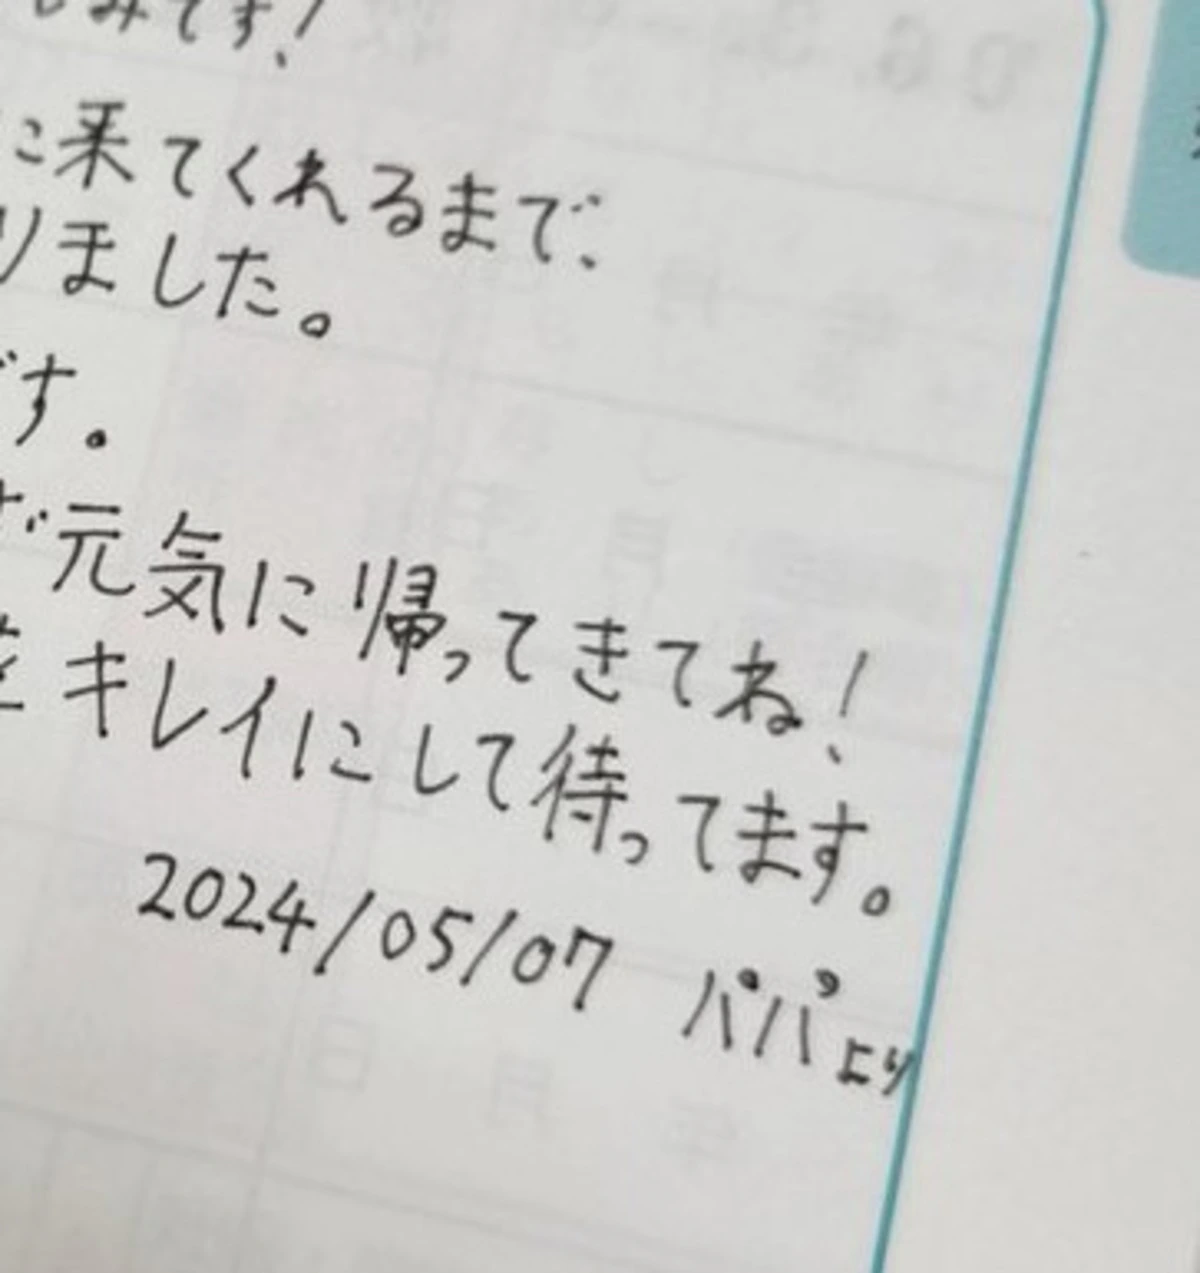 みです!
に来てくれるまで、
りました。
です。
元気に帰ってきてね!
キレイにして待ってます。
2024/05/07 パパより